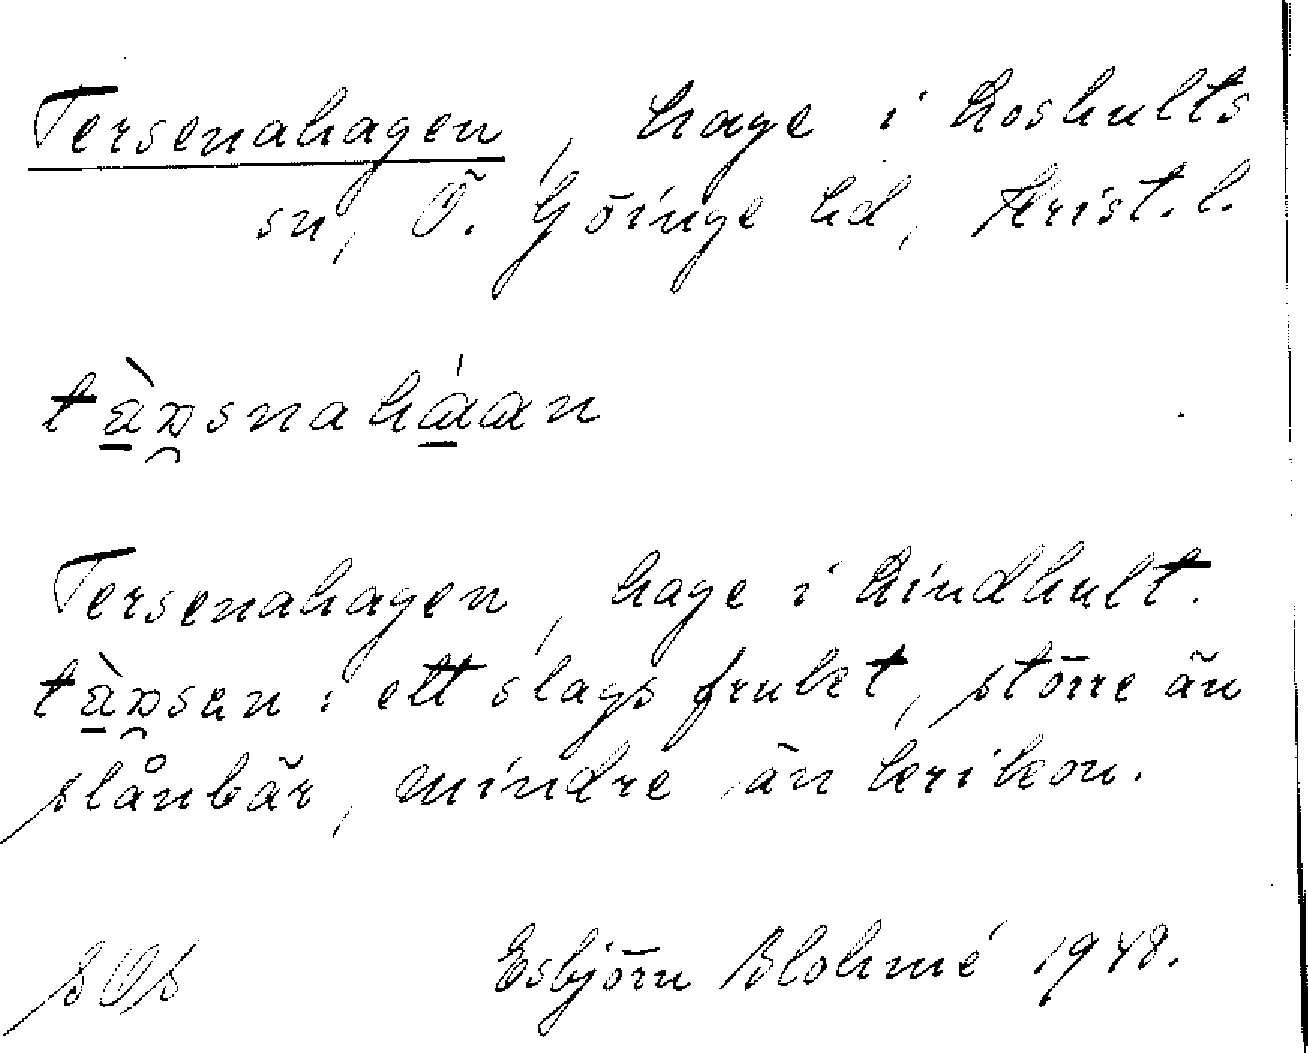 Tersenahagen, hage i Loshults
sn, Ö. Göinge hd, Krist. l.
tà̱ʀ̯snahá̱an
Tersenahagen, hage i Lindhult.
tà̱ʀ̯sen : ett slags frukt, större än
slånbär, mindre än krikon.
SOS Esbjörn Blohmé 1948.